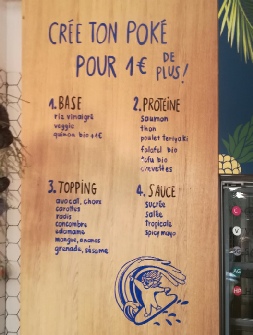 CRÉE TON POKÉ
POUR 1€ DE PLUS!
1. BASE
riz vinaigré
veggie
quinoa bio +1€
2. PROTÉINE
saumon
thon
poulet teriyaki
falafel bio
tofu bio
crevettes
3. TOPPING
avocat, choux
carottes
radis
concombre
edamame
mangue, ananas
grenade, sésame
4. SAUCE
sucrée
salée
tropicale
spicy mayo